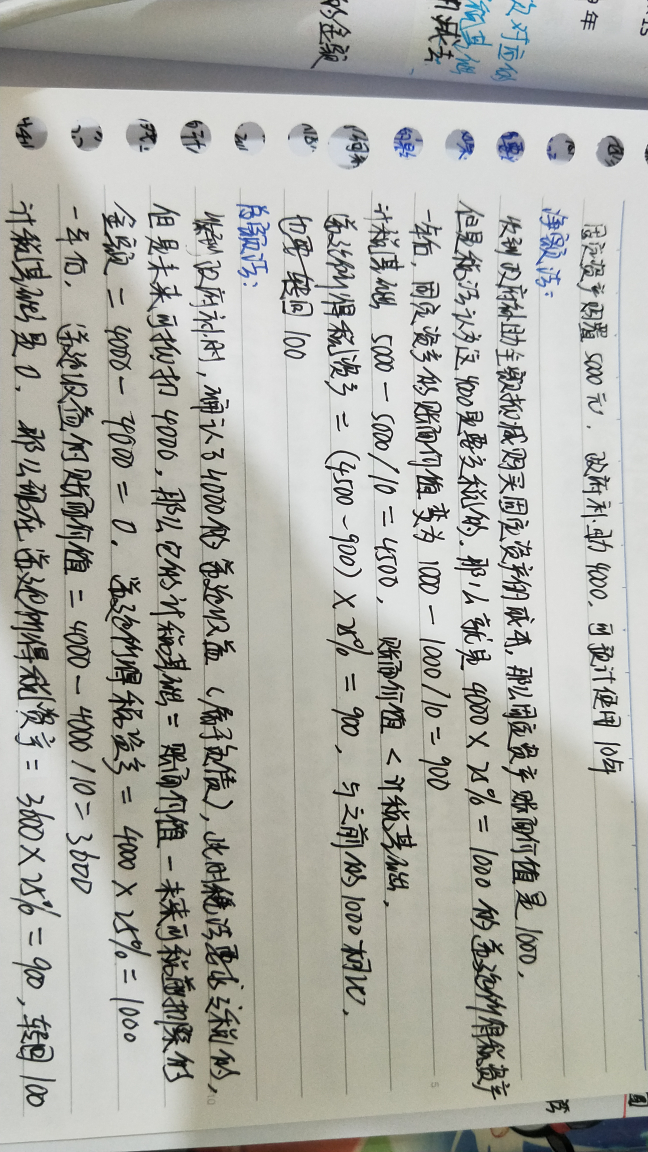 及对应的
税基础
的减去
年
的金额
固定资产购置 5000元，政府补助 4000，可预计使用 10年
净额法：
收到政府补助全额扣减购买固定资产的成本，那么固定资产账面价值是1000，
但是税法认为这4000是要交税的，那么就是 4000×25%=1000的递延所得税资产
一年后，固定资产的账面价值变为 1000-1000/10=900
计税基础 5000-5000/10=4500，账面价值<计税基础，
递延所得税资产=(4500-900)×25%=900，与之前的1000相比，
也要转回100
总额法：
收到政府补助时，确认了4000的递延收益（属于负债），此时税法要求交税的，
但是未来可抵扣4000，那么它的计税基础=账面价值-未来可税前扣除的
金额=4000-4000=0，递延所得税资产=4000×25%=1000
一年后，递延收益的账面价值=4000-4000/10=3600
计税基础是0，那么现在递延所得税资产=3600×25%=900，转回100